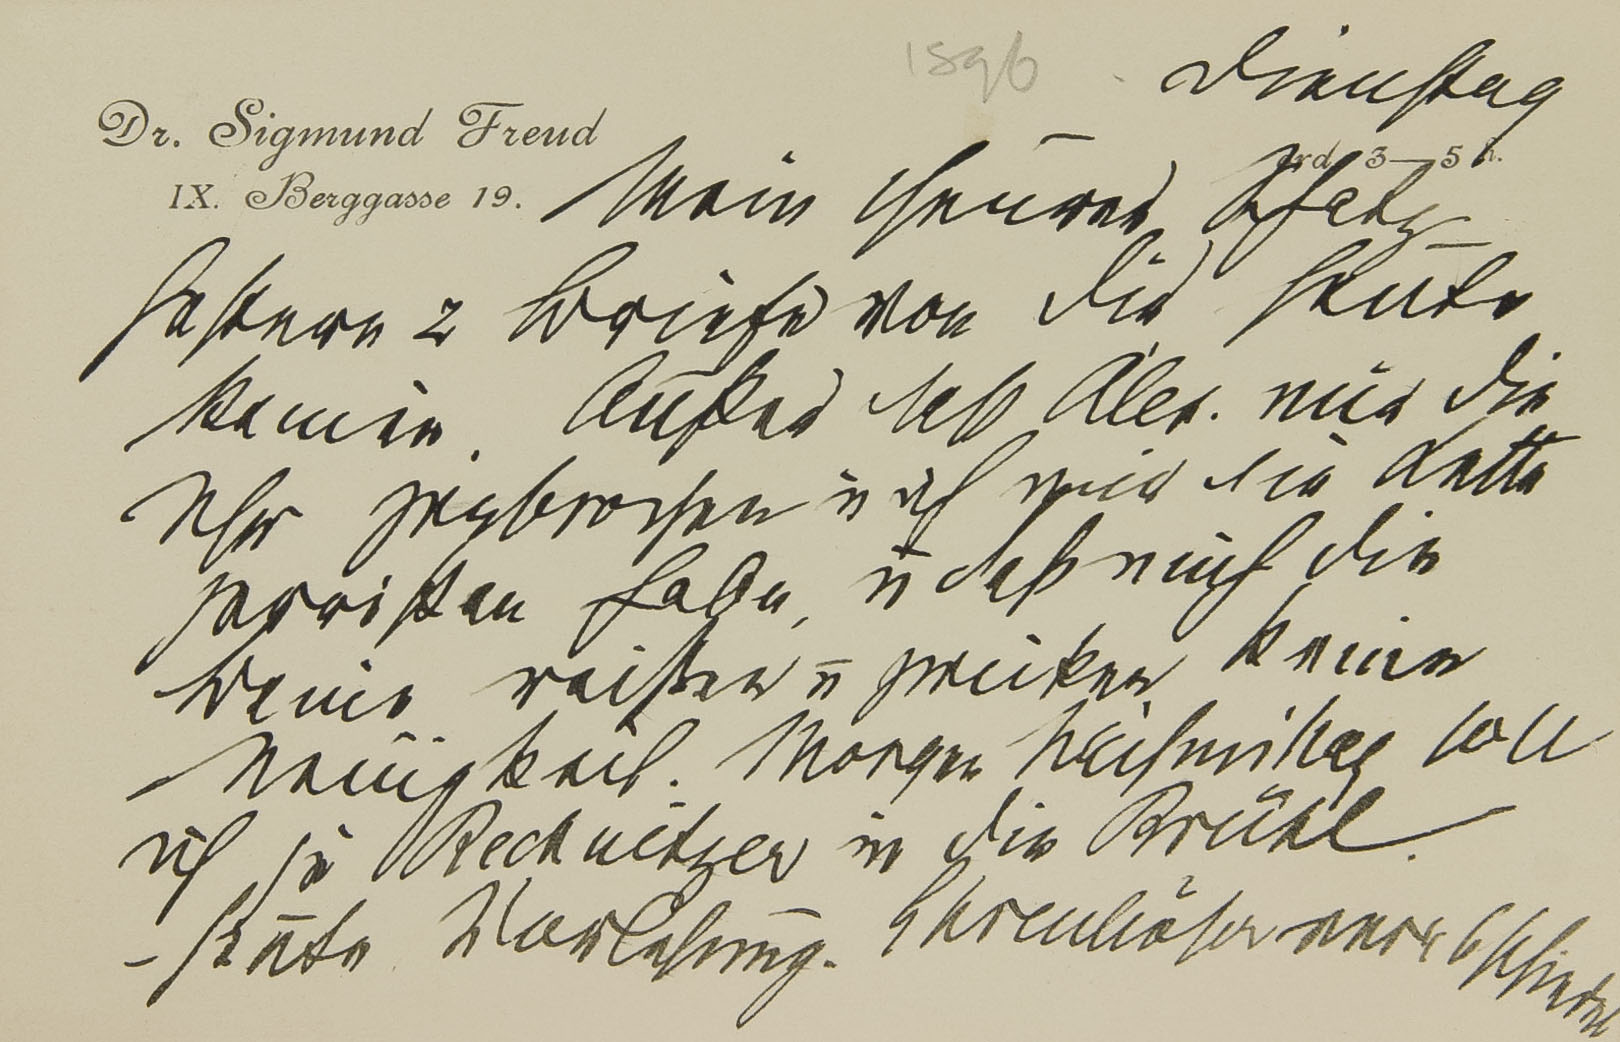 1896
Dienstag
Dr. Sigmund Freud
IX. Berggasse 19.
3–5
Mein theurer Schatz
Gestern 2 Briefe von Dir heute
keiner. Außer daß Alex. mir die
Uhr zerbrochen u ich mir die Kette
zerrissen habe, u daß mich die
Beine reißen u zwicken keine
Neuigkeit. Morgen Nachmittag soll
ich zu Rechnitzer in die Brühl.
– Heute Vorlesung.